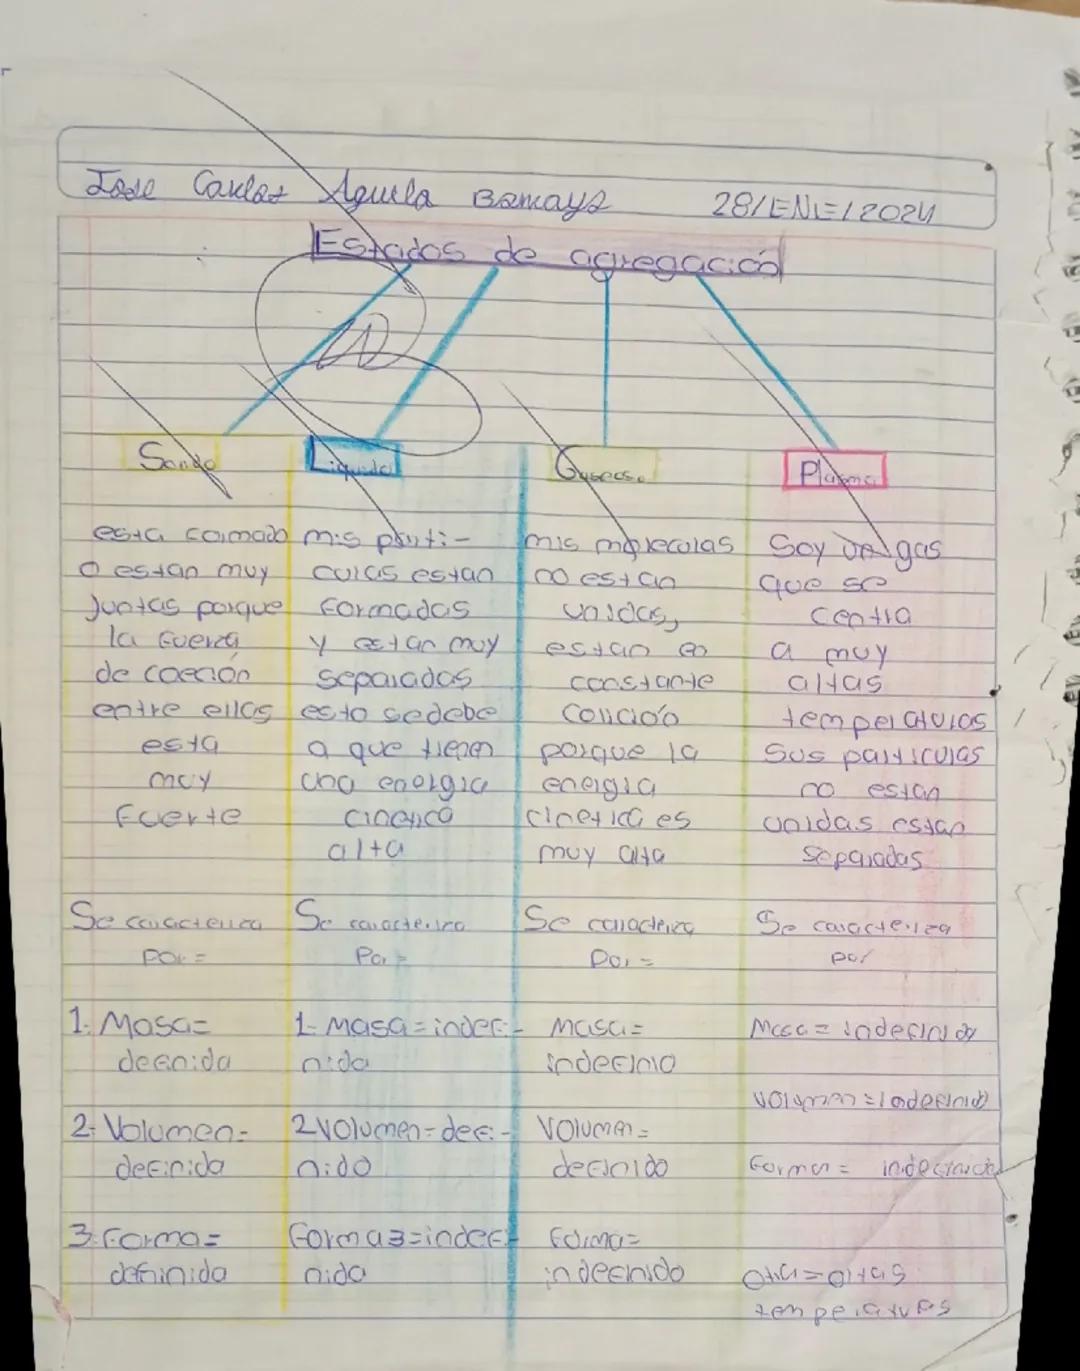 Jose Carlos Aguila Bamaya 28/ENE/2024
Estados de agregación
Solido
esta formado
o estan muy
juntas porque
la fuerza
de coeción
entre ellas
esta
muy
fuerte
Se caracteriza
por=
1. Masa=
definida
2- Volumen-
definida
3. Forma=
definida
Liquido
mis parti-
culas estan
formadas
y estan muy
separadas
esto se debe
a que tienen
una energia
cinetica
alta
Se caracteriza
Por=
1- Masa=indefi-
nida
2 Volumen=defi-
nido
Forma3=indefi-
nida
Gaseoso
mis moleculas
no estan
unidas,
estan en
constante
colición
porque la
energia
cinetica es
muy alta
Se caracteriza
por=
Masa=
indefinio
Volumen=
definido
Forma=
indefinido
Plasma
Soy un gas
que se
centra
a muy
altas
temperaturas
Sus particulas
no estan
unidas estan
separadas
Se caracteriza
por
Masa= indefinida
Volumen=indefinido
Forma= indefinida
otra=altas
temperaturas